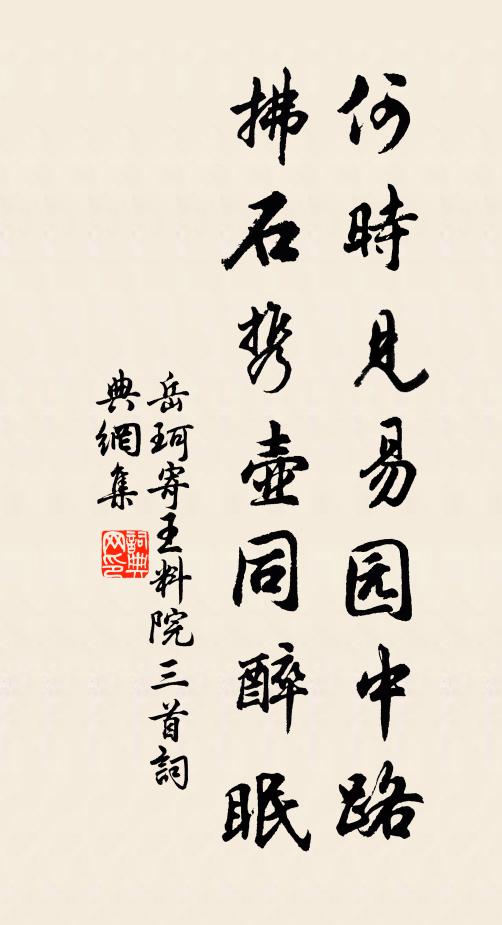 何時見易园中路
拂石携壺同醉眠
岳珂寄王料院三首詞
典網集
詞典网印